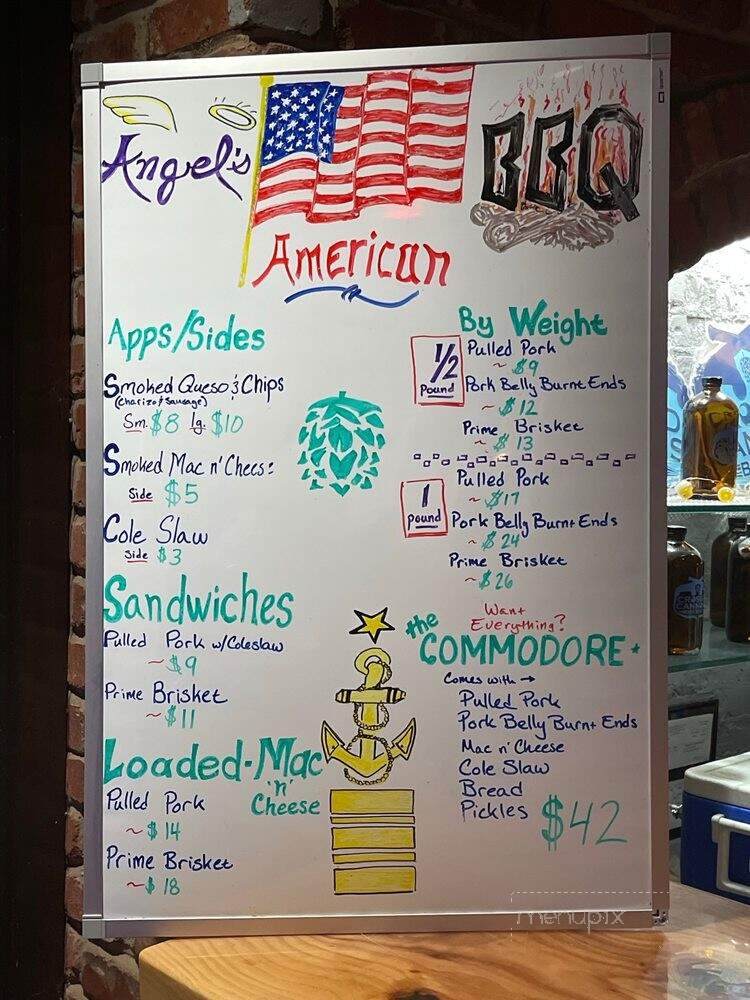 Angel's
BBQ
American
Apps/Sides
Smoked Queso & Chips
(Charizo & Sausage)
Sm. $8 lg. $10
Smoked Mac n' Chees:
Side $5
Cole Slaw
Side $3
Sandwiches
Pulled Pork w/Coleslaw
~ $9
Prime Brisket
~ $11
Loaded-Mac
'n'
Cheese
Pulled Pork
~ $14
Prime Brisket
~ $18
By Weight
1/2
Pound
Pulled Pork
~ $9
Pork Belly Burnt Ends
~ $12
Prime Brisket
~ $13
1
Pound
Pulled Pork
~ $17
Pork Belly Burnt Ends
~ $24
Prime Brisket
~ $26
Want
Everything?
the
COMMODORE
Comes with →
Pulled Pork
Pork Belly Burnt Ends
Mac n' Cheese
Cole Slaw
Bread
Pickles $42
menupix